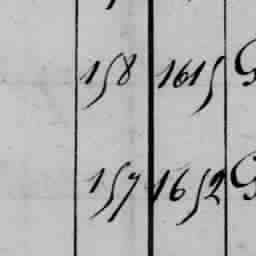 158 1615 G
157 1652 G